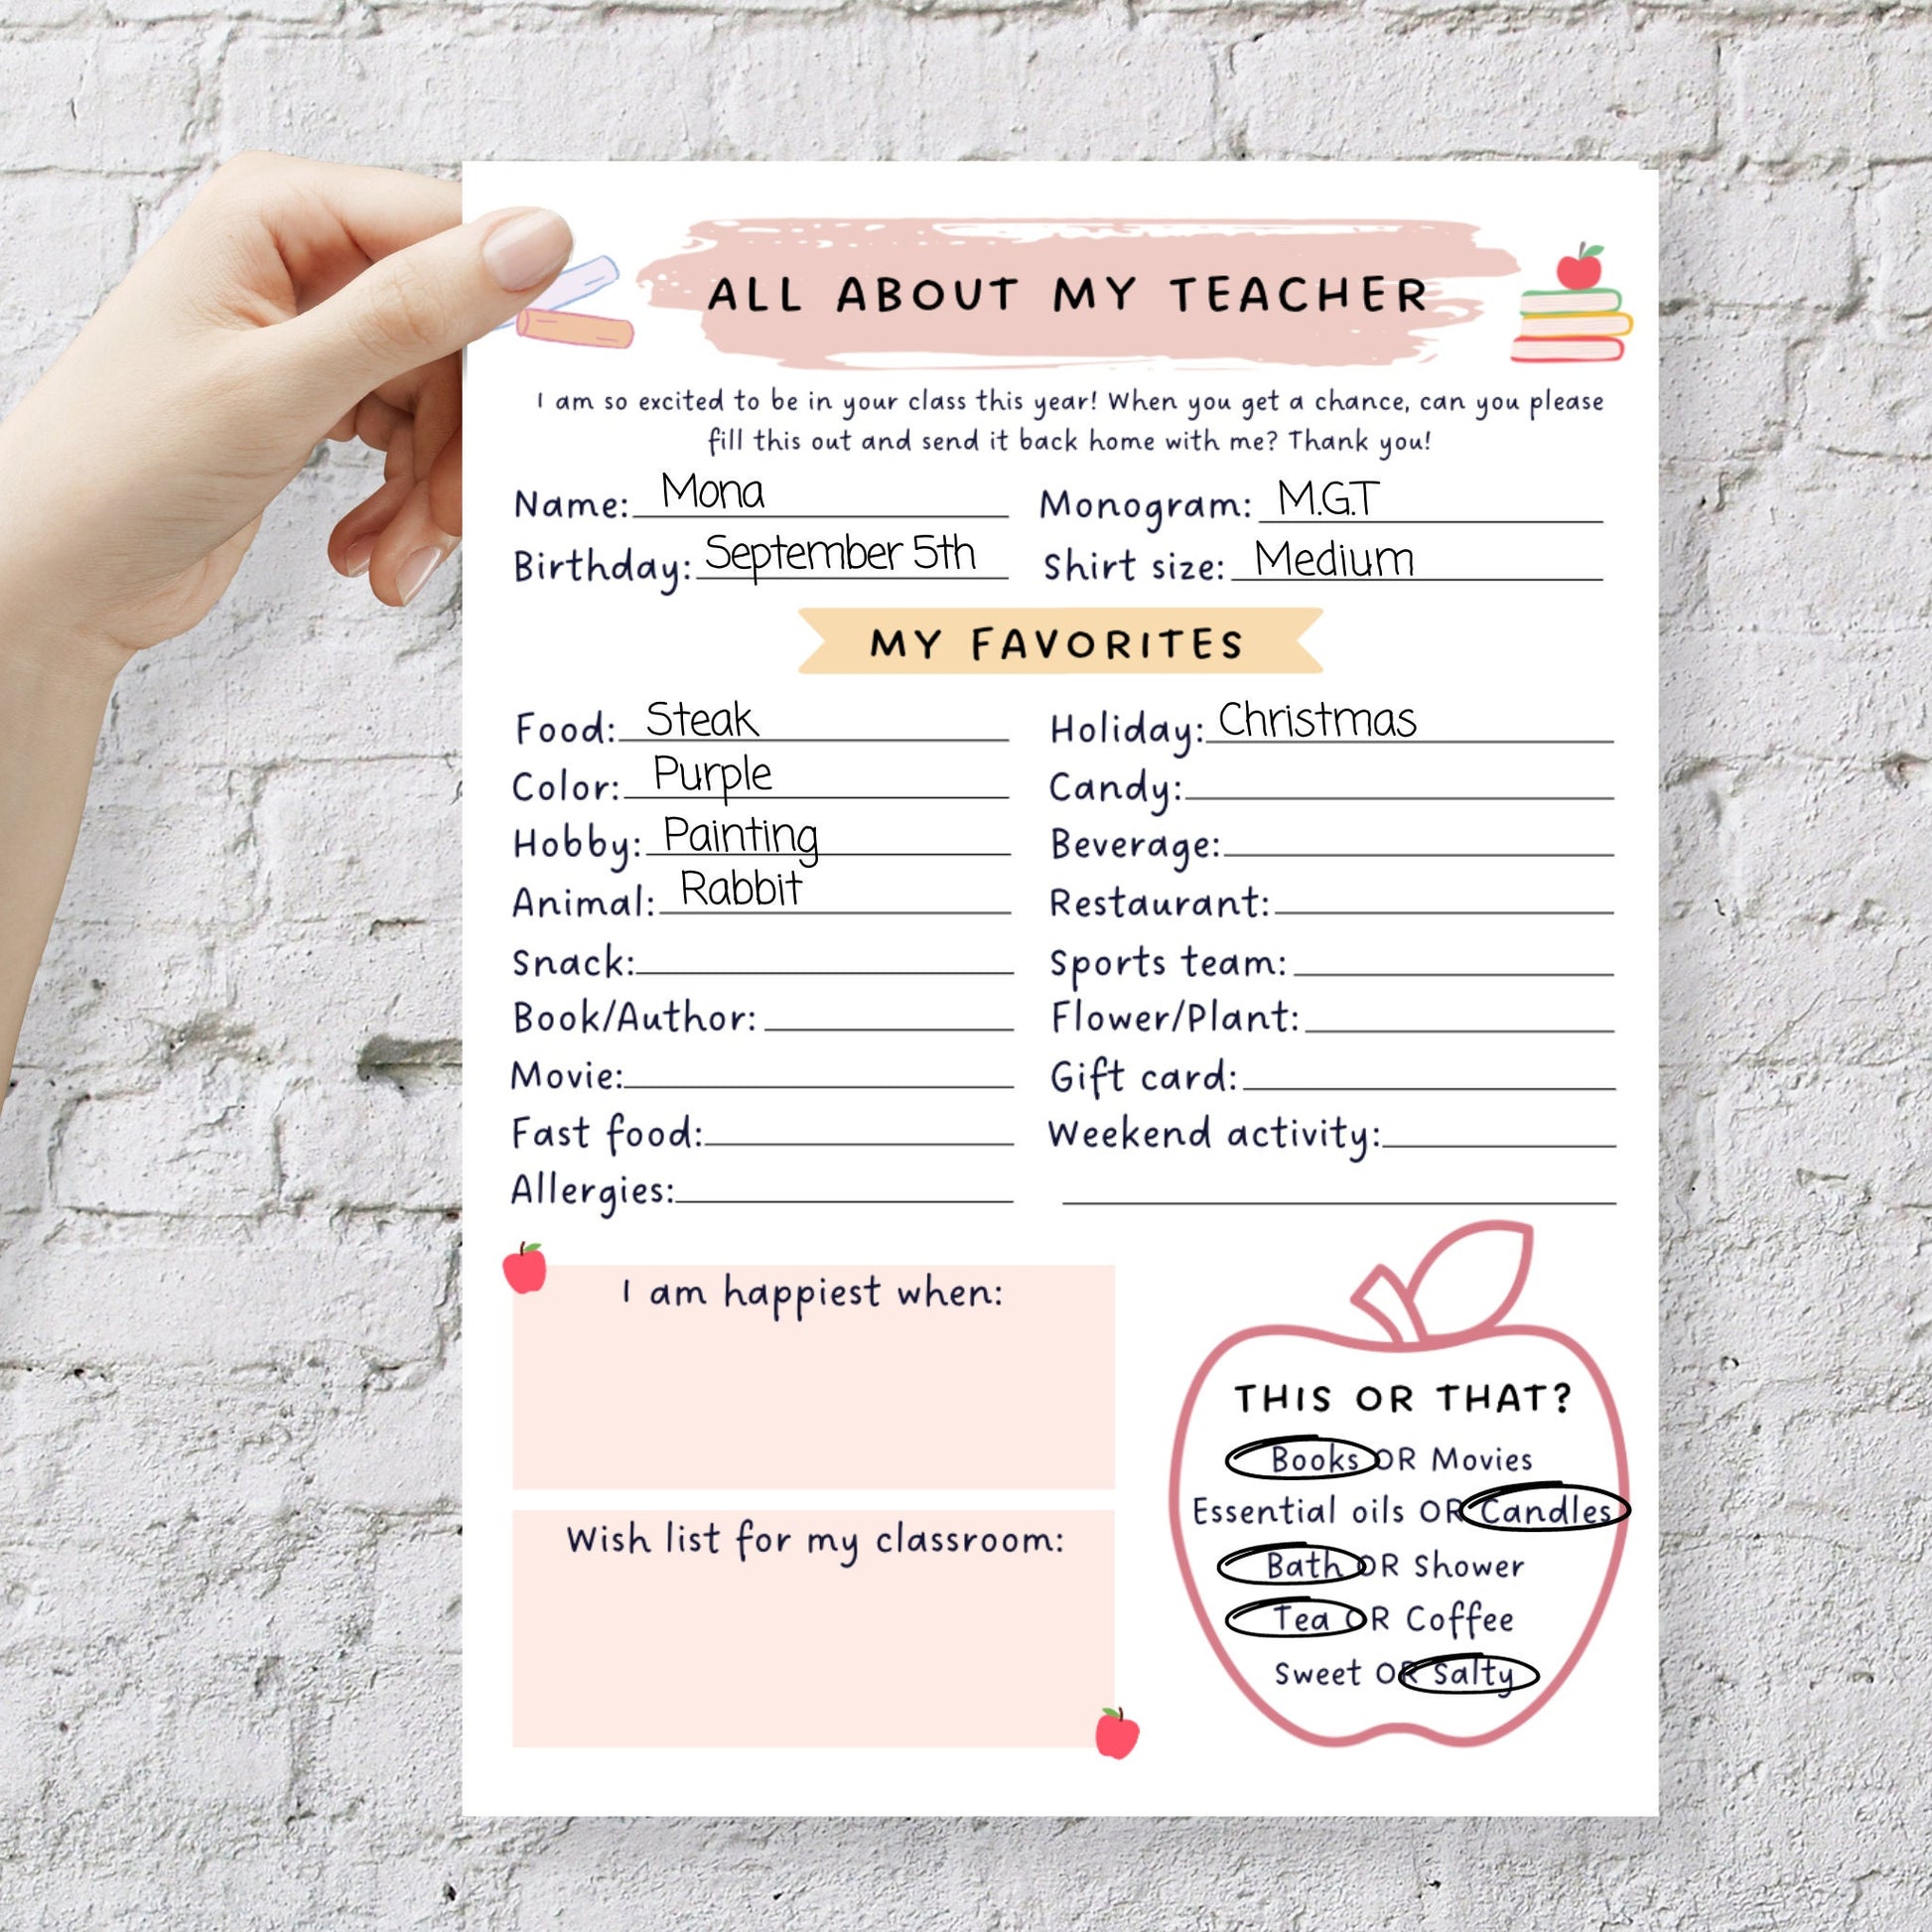 ALL ABOUT MY TEACHER
I am so excited to be in your class this year! When you get a chance, can you please
fill this out and send it back home with me? Thank you!
Name: Mona Monogram: M.G.T
Birthday: September 5th Shirt size: Medium
MY FAVORITES
Food: Steak Holiday: Christmas
Color: Purple Candy:
Hobby: Painting Beverage:
Animal: Rabbit Restaurant:
Snack: Sports team:
Book/Author: Flower/Plant:
Movie: Gift card:
Fast food: Weekend activity:
Allergies:
I am happiest when:
Wish list for my classroom:
THIS OR THAT?
Books OR Movies
Essential oils OR Candles
Bath OR Shower
Tea OR Coffee
Sweet OR Salty